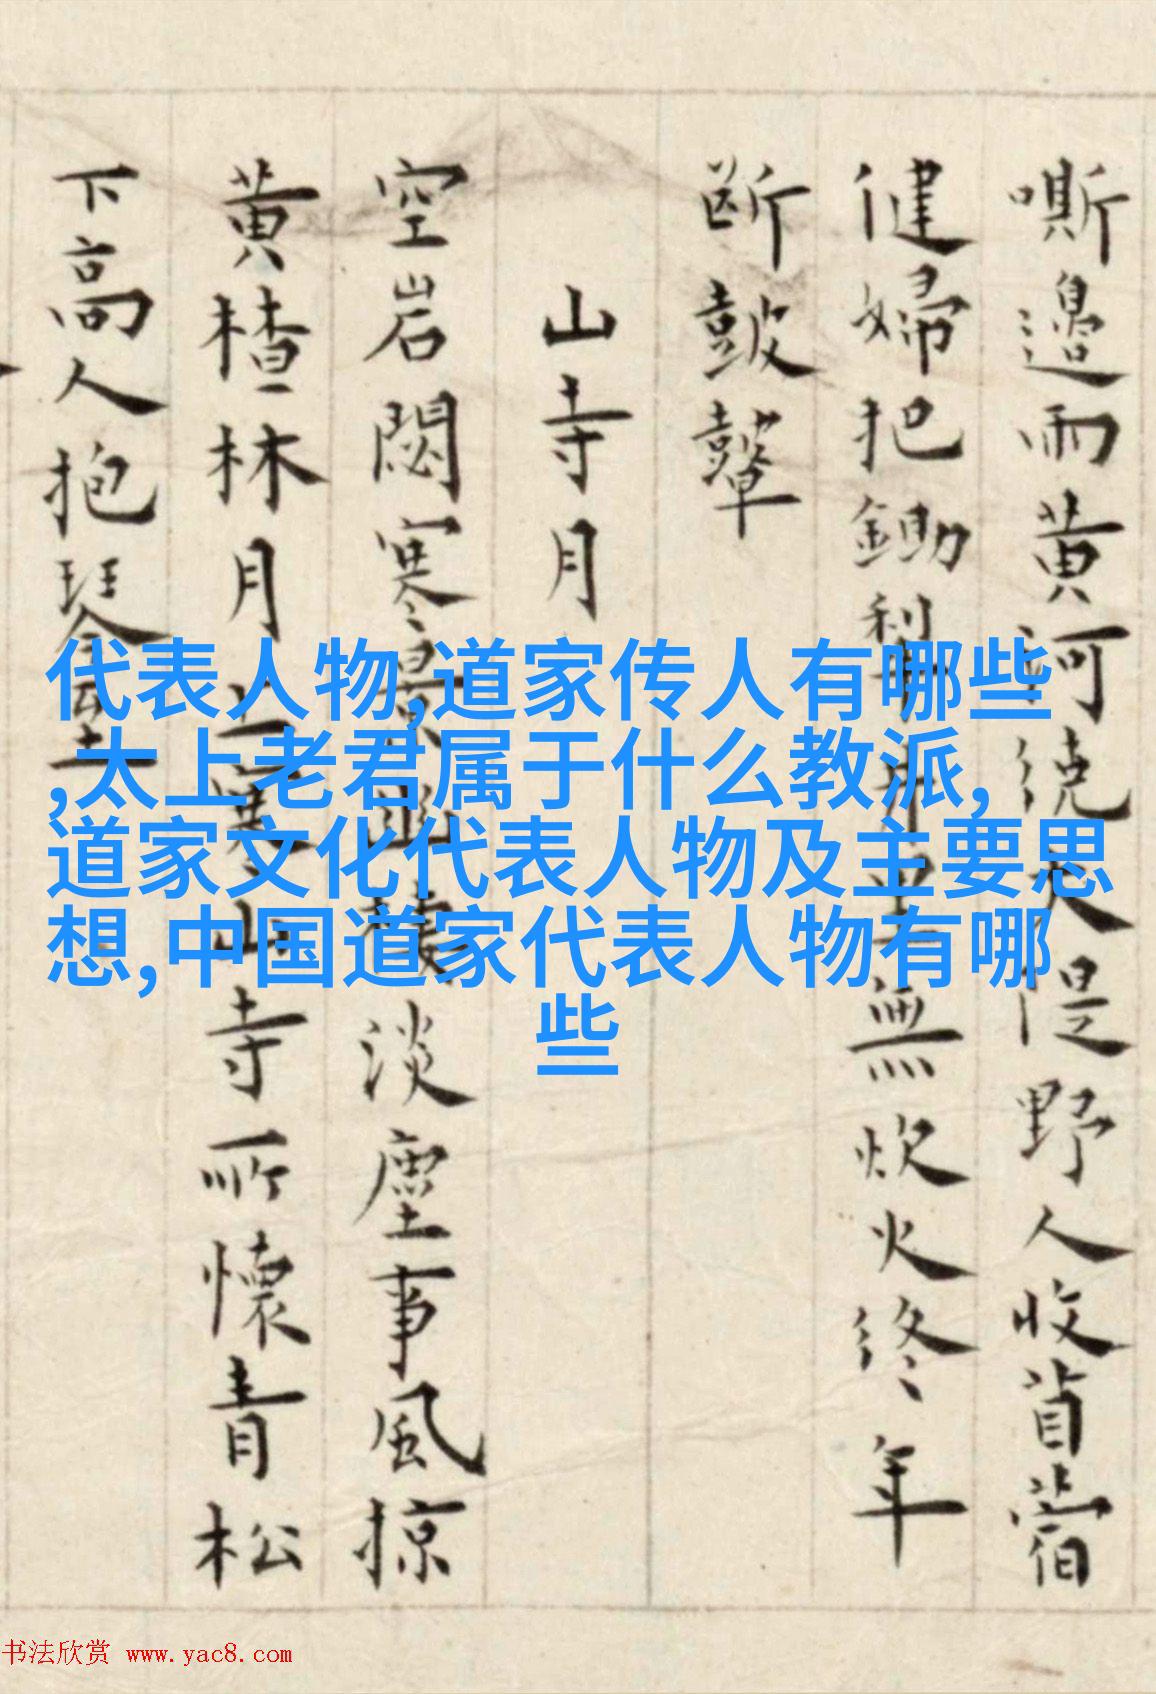 代表人物,道家传人有哪些
,太上老君属于什么教派,
道家文化代表人物及主要思
想,中国道家代表人物有哪
些
嘶邉雨黄河繞大隄野人收苜蓿
健婦把鋤犂井里無炊火終年
斷鼓鼙
山寺月
空岩閟寒景幽棲淡塵事風掠
黄楂林月上寒山寺所懷青松
下高人抱琴至
书法欣赏 www.yac8.com